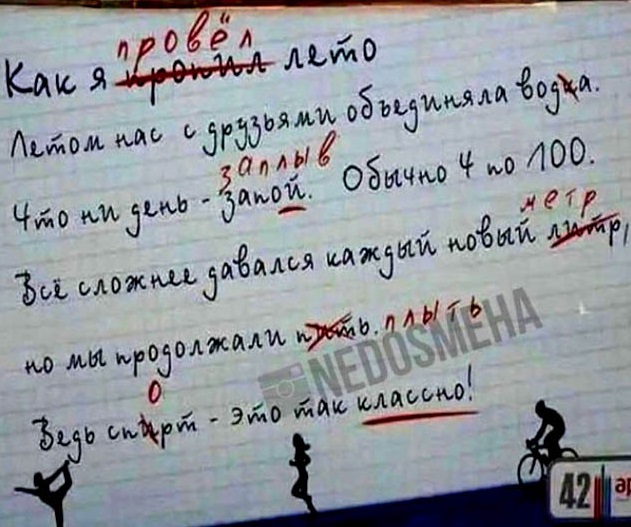 провёл
Как я пропил лето
Летом нас с друзьями объединяла водка.
заплыв
Что ни день - запой. Обычно 4 по 100.
метр
Всё сложнее давался каждый новый литр,
но мы продолжали пить. плыть
о
Ведь спирт - это так классно!
NEDOSMEHA
42 ар